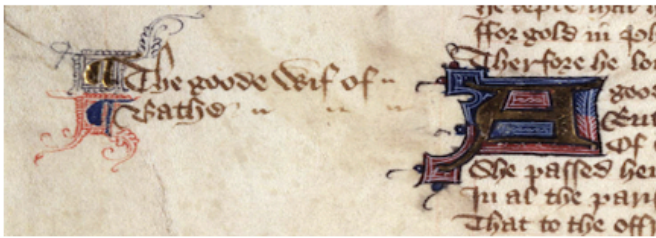 The goode Wif of
Bathe
He kepte that
ffor gold in ph
Therfore he lo
A good
But
Of
She passed hem
In al the pari
That to the off